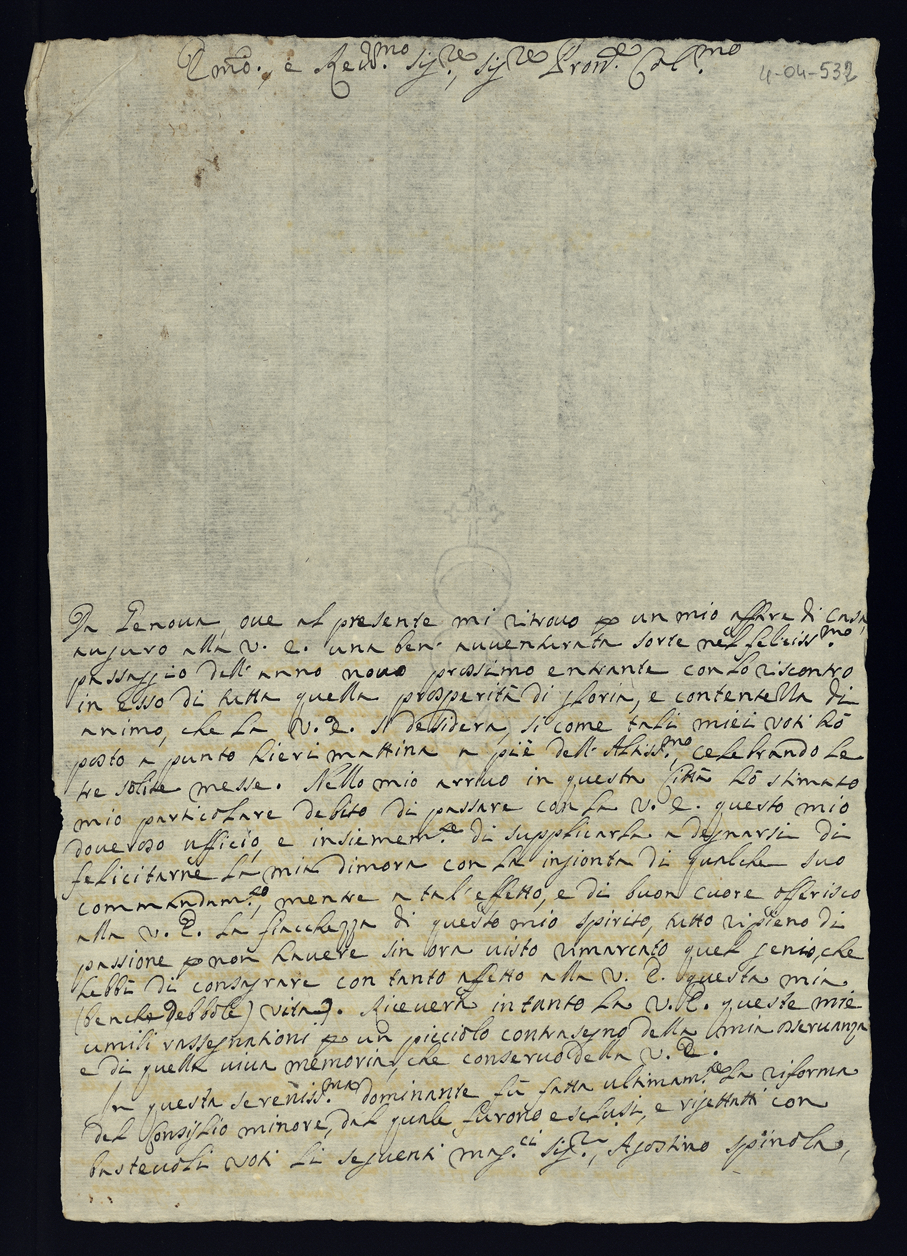 Emo., e Reu.mo sig.re, sig.re Pron.e Col.mo
4-04-532
Da Genoua, oue al presente mi ritrouo p un mio affare di casa,
auguro alla V. E. una ben' auuenturata sorte nel feliciss.mo
passaggio dell' anno nouo prossimo entrante con lo riscontro
in esso di tutta quella prosperità di gloria, e contentezza di
animo, che la V. E. si desidera, si come tali miei voti hò
posto a punto hieri mattina a piè dell' Altiss.mo celebrando le
tre solite messe. Nello mio arriuo in questa Città hò stimato
mio particolare debito di passare con la V. E. questo mio
doueroso ufficio, e insiemem.te di supplicarla a degnarsi di
felicitarne la mia dimora con la ingionta di qualche suo
commandam.to, mentre a tal' effetto, e di buon cuore offerisco
alla V. E. la fiacchezza di questo mio spirito, tutto ripieno di
passione p non hauere sin ora uisto rimarcato quel genio, che
hebbi di consagrare con tanto affetto alla V. E. questa mia
(benche debbole) vita). Riceuerà intanto la V. E. queste mie
umili rassegnationi p un picciolo contrasegno della mia osseruanza
e di quella uiua memoria, che conseruo della V. E.
In questa sereniss.ma dominante fù fatta ultimam.te la riforma
del Consiglio minore, dal quale furono esclusi, e rigettati con
basteuoli voti li seguenti mag.ci sig.ri, Agostino Spinola,